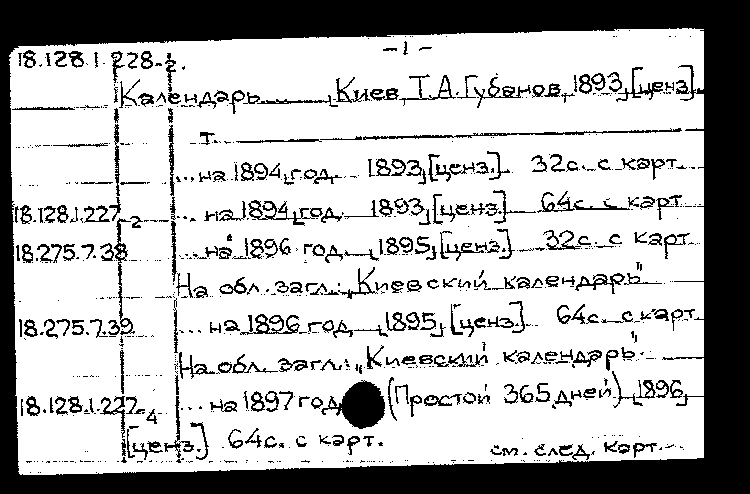 -1-
18.128.1.228-2.
Календарь. , Киев, Т.А. Губанов, 1893, [ценз].
т.
... на 1894, год. 1893, [ценз.]. 32с. с карт.
18.128.1.227-2 ... на 1894, год. 1893, [ценз.] 64с. с карт
18.275.7.38 ... на 1896 год. , 1895, [ценз.] 32с. с карт.
На обл. загл.: „Киевский календарь"
18.275.7.39 ... на 1896 год, , 1895, [ценз.] 64с. с карт.
На обл. загл.: „Киевский календарь".
18.128.1.227-4 ... на 1897 год (Простой 365 дней), 1896,
[ценз.] 64с. с карт.
см. след. карт.